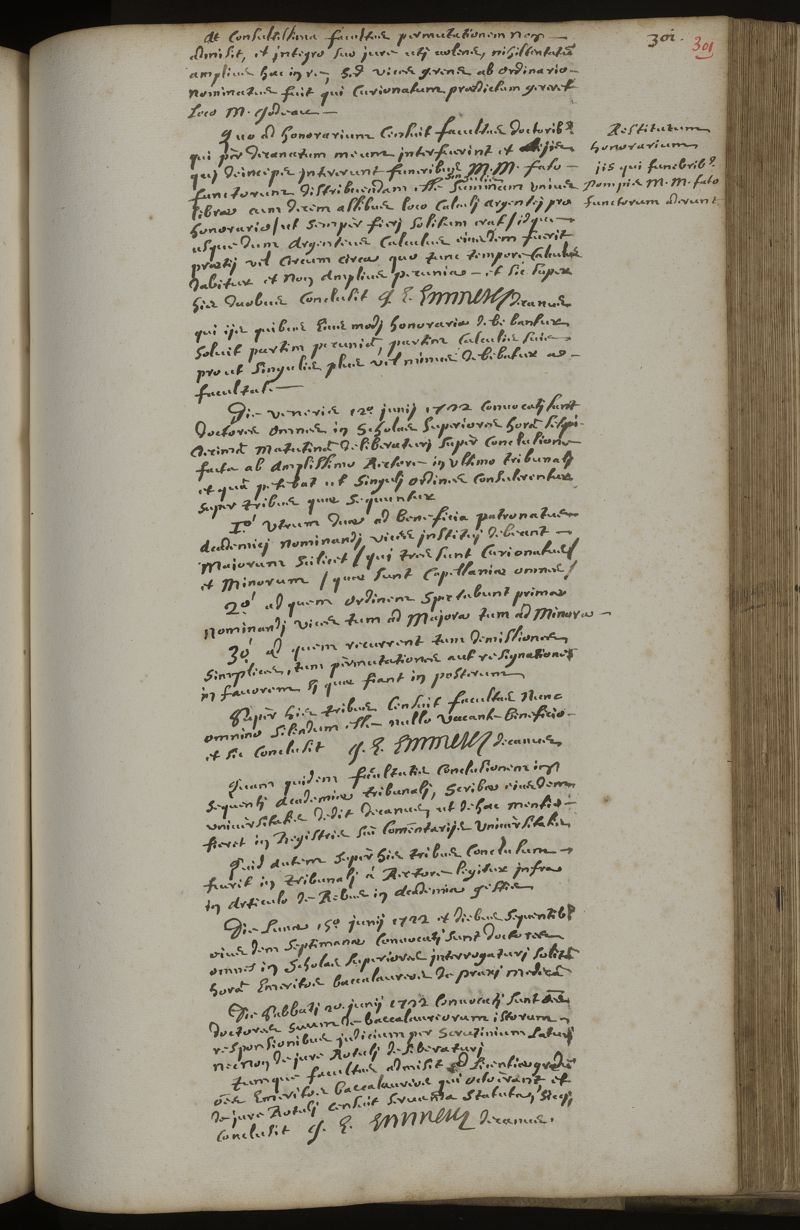 301. 301
At Consultissima facultas permutationem non
admisit, et integro suo jure uti volens, nihil tentatum
amplius hac in re, sed vices gerens ab ordinario
nominatus fuit qui Curionatum praedictum gereret
loco M. Jodeau
Quo ad honorarium Censuit facultas doctoribus
qui per decanatum meum interfuerint et
qui deinceps intererunt funeribus M.M. fato
functorum distribuendam esse singulis summam unius
librae cum decem assibus loco Calculi argentei pro
honorario/ut semper fieri solitum erat/idque
usque dum Argenteus Calculus eiusdem fuerit
praetii vel circum circa quo tunc tempore Calculus
dabitur et non amplius pecunia et sic super
his duobus Conclusit J. E. Emmerez decanus
qui iis quibus hujus modi honoraria debebantur
soluit partim pecuniâ, partim Calculis suis
prout singulis plus vel minus debebatur a
facultate
Restitutum
honorarium
iis qui funebribus
Pompis M.M. fato
functorum aderunt
Die veneris 12a junij 1722 Convocati sunt
doctores omnes in Scholas Superiores horâ
matutinâ deliberaturi super Conclusione
facta ab Amplissimo Rectore in ultimo tribunali
et quâ petebat ut singuli ordines Consulerentur
super tribus quae sequuntur
1o. Utrum duae ad beneficia patronatus
Academici nominandi vices institui debeant
Majorum scilicet/qui tres sunt Curionatus/
et Minorum/quae sunt Capellaniae omnes/
2o. ad quem ordinem spectabunt primae
nominandi vices tum ad Majora tum ad Minora
3o. ad quem recurrent tum demissiones
simplices, tum permutationes aut resignationes
in favorem quae fiant in posterum
Super his tribus Censuit facultas nunc
omnino silendum esse nullo vacante beneficio
et sic Conclusit J. E. Emmerez decanus
Quam quidem facultatis Conclusionem in
sequenti Academiae tribunali, Scribae eiusdem
universitatis dedit decanus ut de hac mentio
fieret in Registris seu Commentariis Universitatis
Quid autem super his tribus Conclusum
fuerit in tribunali à Rectore legitur infra
in Articulo de Rebus in Academia gestis
Die Lunae 15a junij 1722 et diebus sequentibus
eius dem septimanae Convocati sunt doctores
omnes in Scholas superiores interrogaturi solitâ
horâ Emeritos baccalaureos de praxi medicâ
Die Sabbati 20. junij 1722 Convocati sunt omnes
doctores suum de baccalaureorum istorum
responsionibus judicium per Scrutinium laturi
necnon de jure Rotuli deliberaturi
tumque facultas admisit ad licentiae gradus
omnes Emeritos baccalaureos qui et
de jure Rotuli censuit servanda statuta, sicq;
Conclusit J. E. Emmerez decanus.